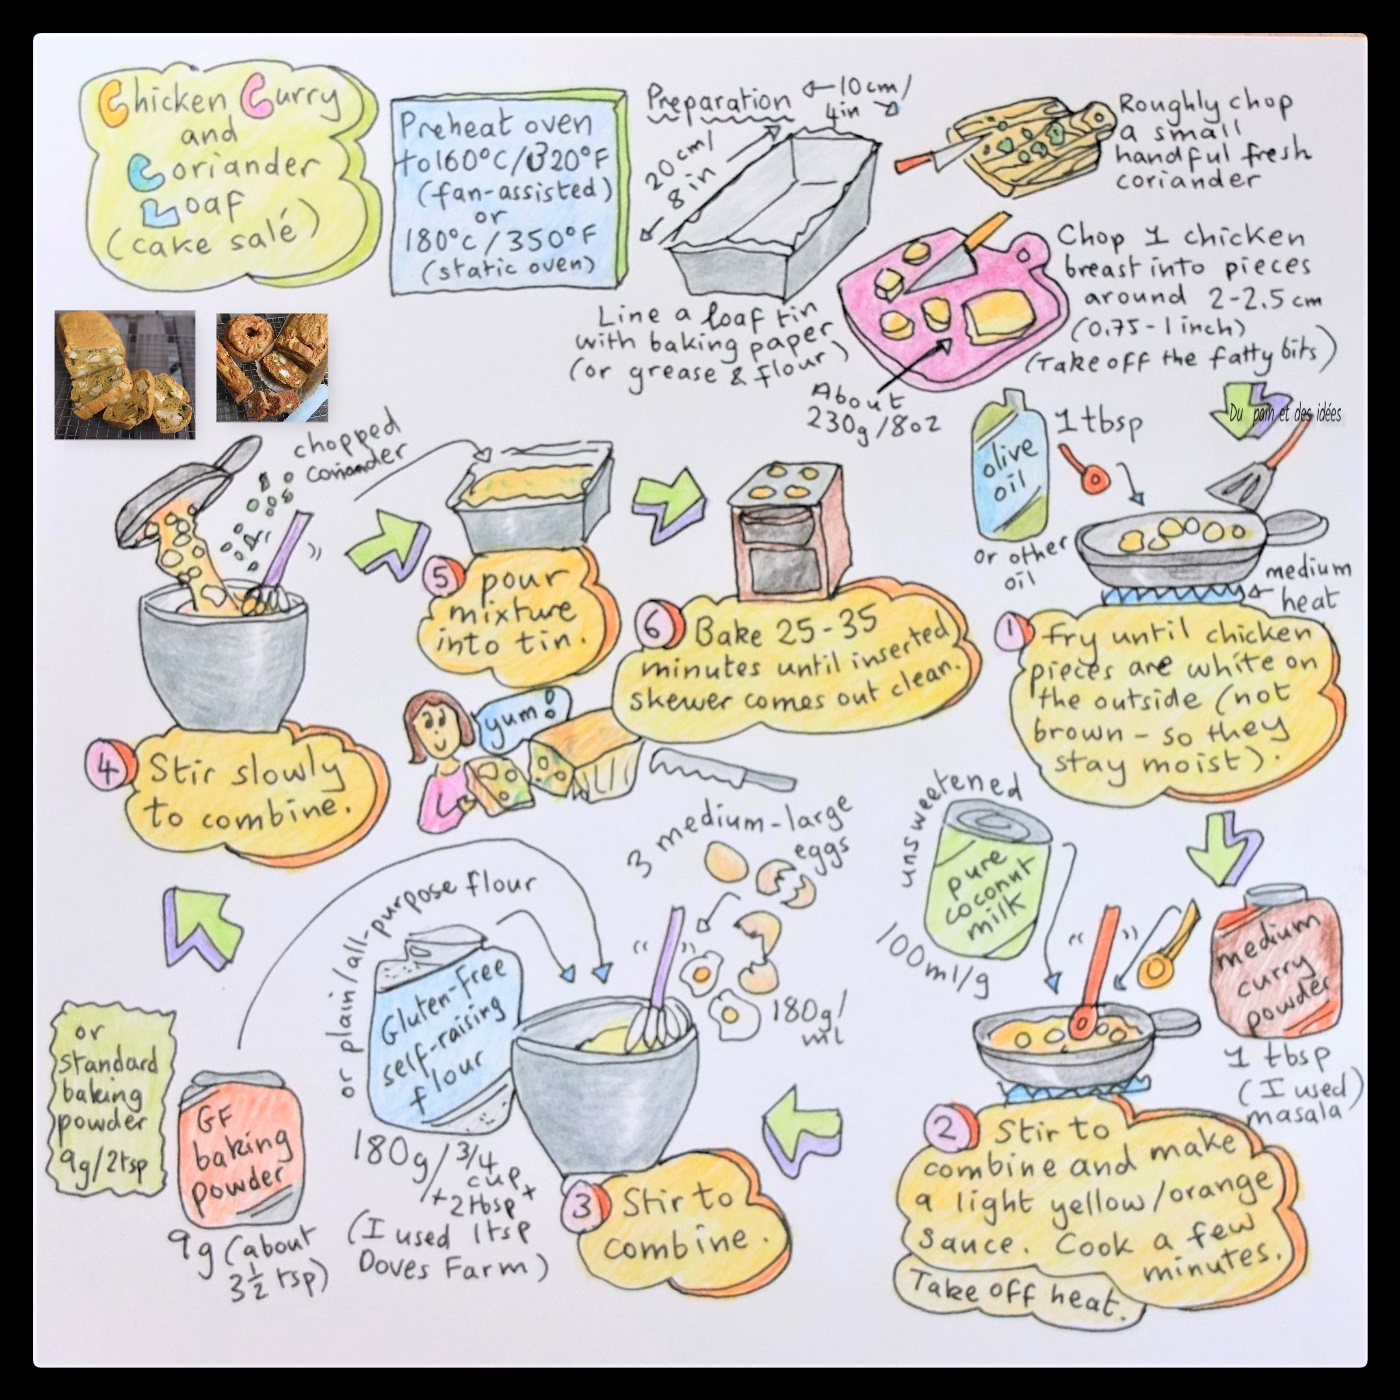 Chicken Curry
and
Coriander
Loaf
(cake salé)
Preheat oven
to 160°C/320°F
(fan-assisted)
or
180°C/350°F
(static oven)
Preparation
10cm/
4in
20cm/
8in
Line a loaf tin
with baking paper
(or grease & flour)
Roughly chop
a small
handful fresh
coriander
Chop 1 chicken
breast into pieces
around 2-2.5cm
(0.75-1 inch)
(Take off the fatty bits)
About
230g/8oz
Du pain et des idées
olive
oil
1 tbsp
or other
oil
medium
heat
1
Fry until chicken
pieces are white on
the outside (not
brown - so they
stay moist).
unsweetened
pure
coconut
milk
100ml/g
medium
curry
powder
1 tbsp
(I used)
masala
2
Stir to
combine and make
a light yellow/orange
sauce. Cook a few
minutes.
Take off heat.
3 medium-large
eggs
180g/
ml
or plain/all-purpose flour
Gluten-Free
self-raising
flour
180g/3/4
cup
+2tbsp+
1tsp
(I used
Doves Farm)
GF
baking
powder
9g (about
3 1/2 tsp)
or
standard
baking
powder
9g/2tsp
3
Stir to
combine.
chopped
coriander
4
Stir slowly
to combine.
5
pour
mixture
into tin.
6
Bake 25-35
minutes until inserted
skewer comes out clean.
yum!